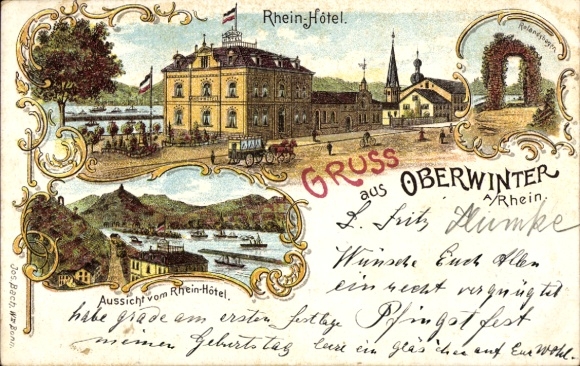 Rhein-Hôtel.
Rolandsbogen.
GRUSS
aus OBERWINTER
A/Rhein.
Aussicht vom Rhein-Hôtel.
Jos. Bach Wwe Bonn.
L. Fritz Humke
Wünsche Euch Allen
ein recht vergnügtes
Pfingstfest
habe grade am ersten Festtage
meinen Geburtstag leere ein gläschen auf Euer Wohl.